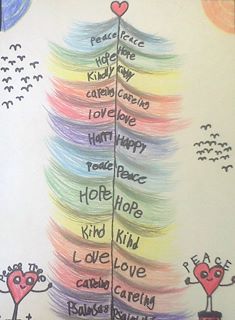 Peace Peace
Hope Hope
Kindly
careing Careing
love love
Happy Happy
Peace Peace
HOPE HOPE
Kind Kind
LOVE LOVE
careing Careing
PEACE